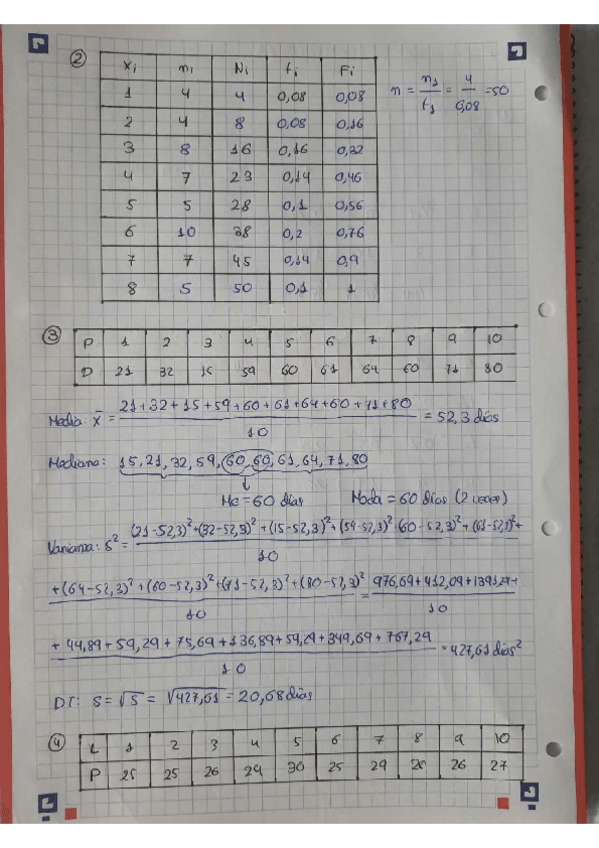 ②
xi ni Ni fi Fi
1 4 4 0,08 0,08
2 4 8 0,08 0,16
3 8 16 0,16 0,32
4 7 23 0,14 0,46
5 5 28 0,1 0,56
6 10 38 0,2 0,76
7 7 45 0,14 0,9
8 5 50 0,1 1
n = n1/f1 = 4/0,08 = 50
③
P 1 2 3 4 5 6 7 8 9 10
D 21 32 15 59 60 61 64 60 71 80
Media: x̄ = 21+32+15+59+60+61+64+60+71+80 / 10 = 52,3 días
Mediana: 15,21,32,59,60,60,61,64,71,80
Me = 60 días Moda = 60 días (2 veces)
Varianza: s² = (21-52,3)²+(32-52,3)²+(15-52,3)²+(59-52,3)²+(60-52,3)²+(61-52,3)²+ / 10
+(64-52,3)²+(60-52,3)²+(71-52,3)²+(80-52,3)² / 10 = 976,69+412,09+1391,29+ / 10
+44,89+59,29+75,69+136,89+59,29+349,69+767,29 / 10 = 427,61 días²
DT: S = √S = √427,61 = 20,68 días
④
L 1 2 3 4 5 6 7 8 9 10
P 25 25 26 24 30 25 29 28 26 27